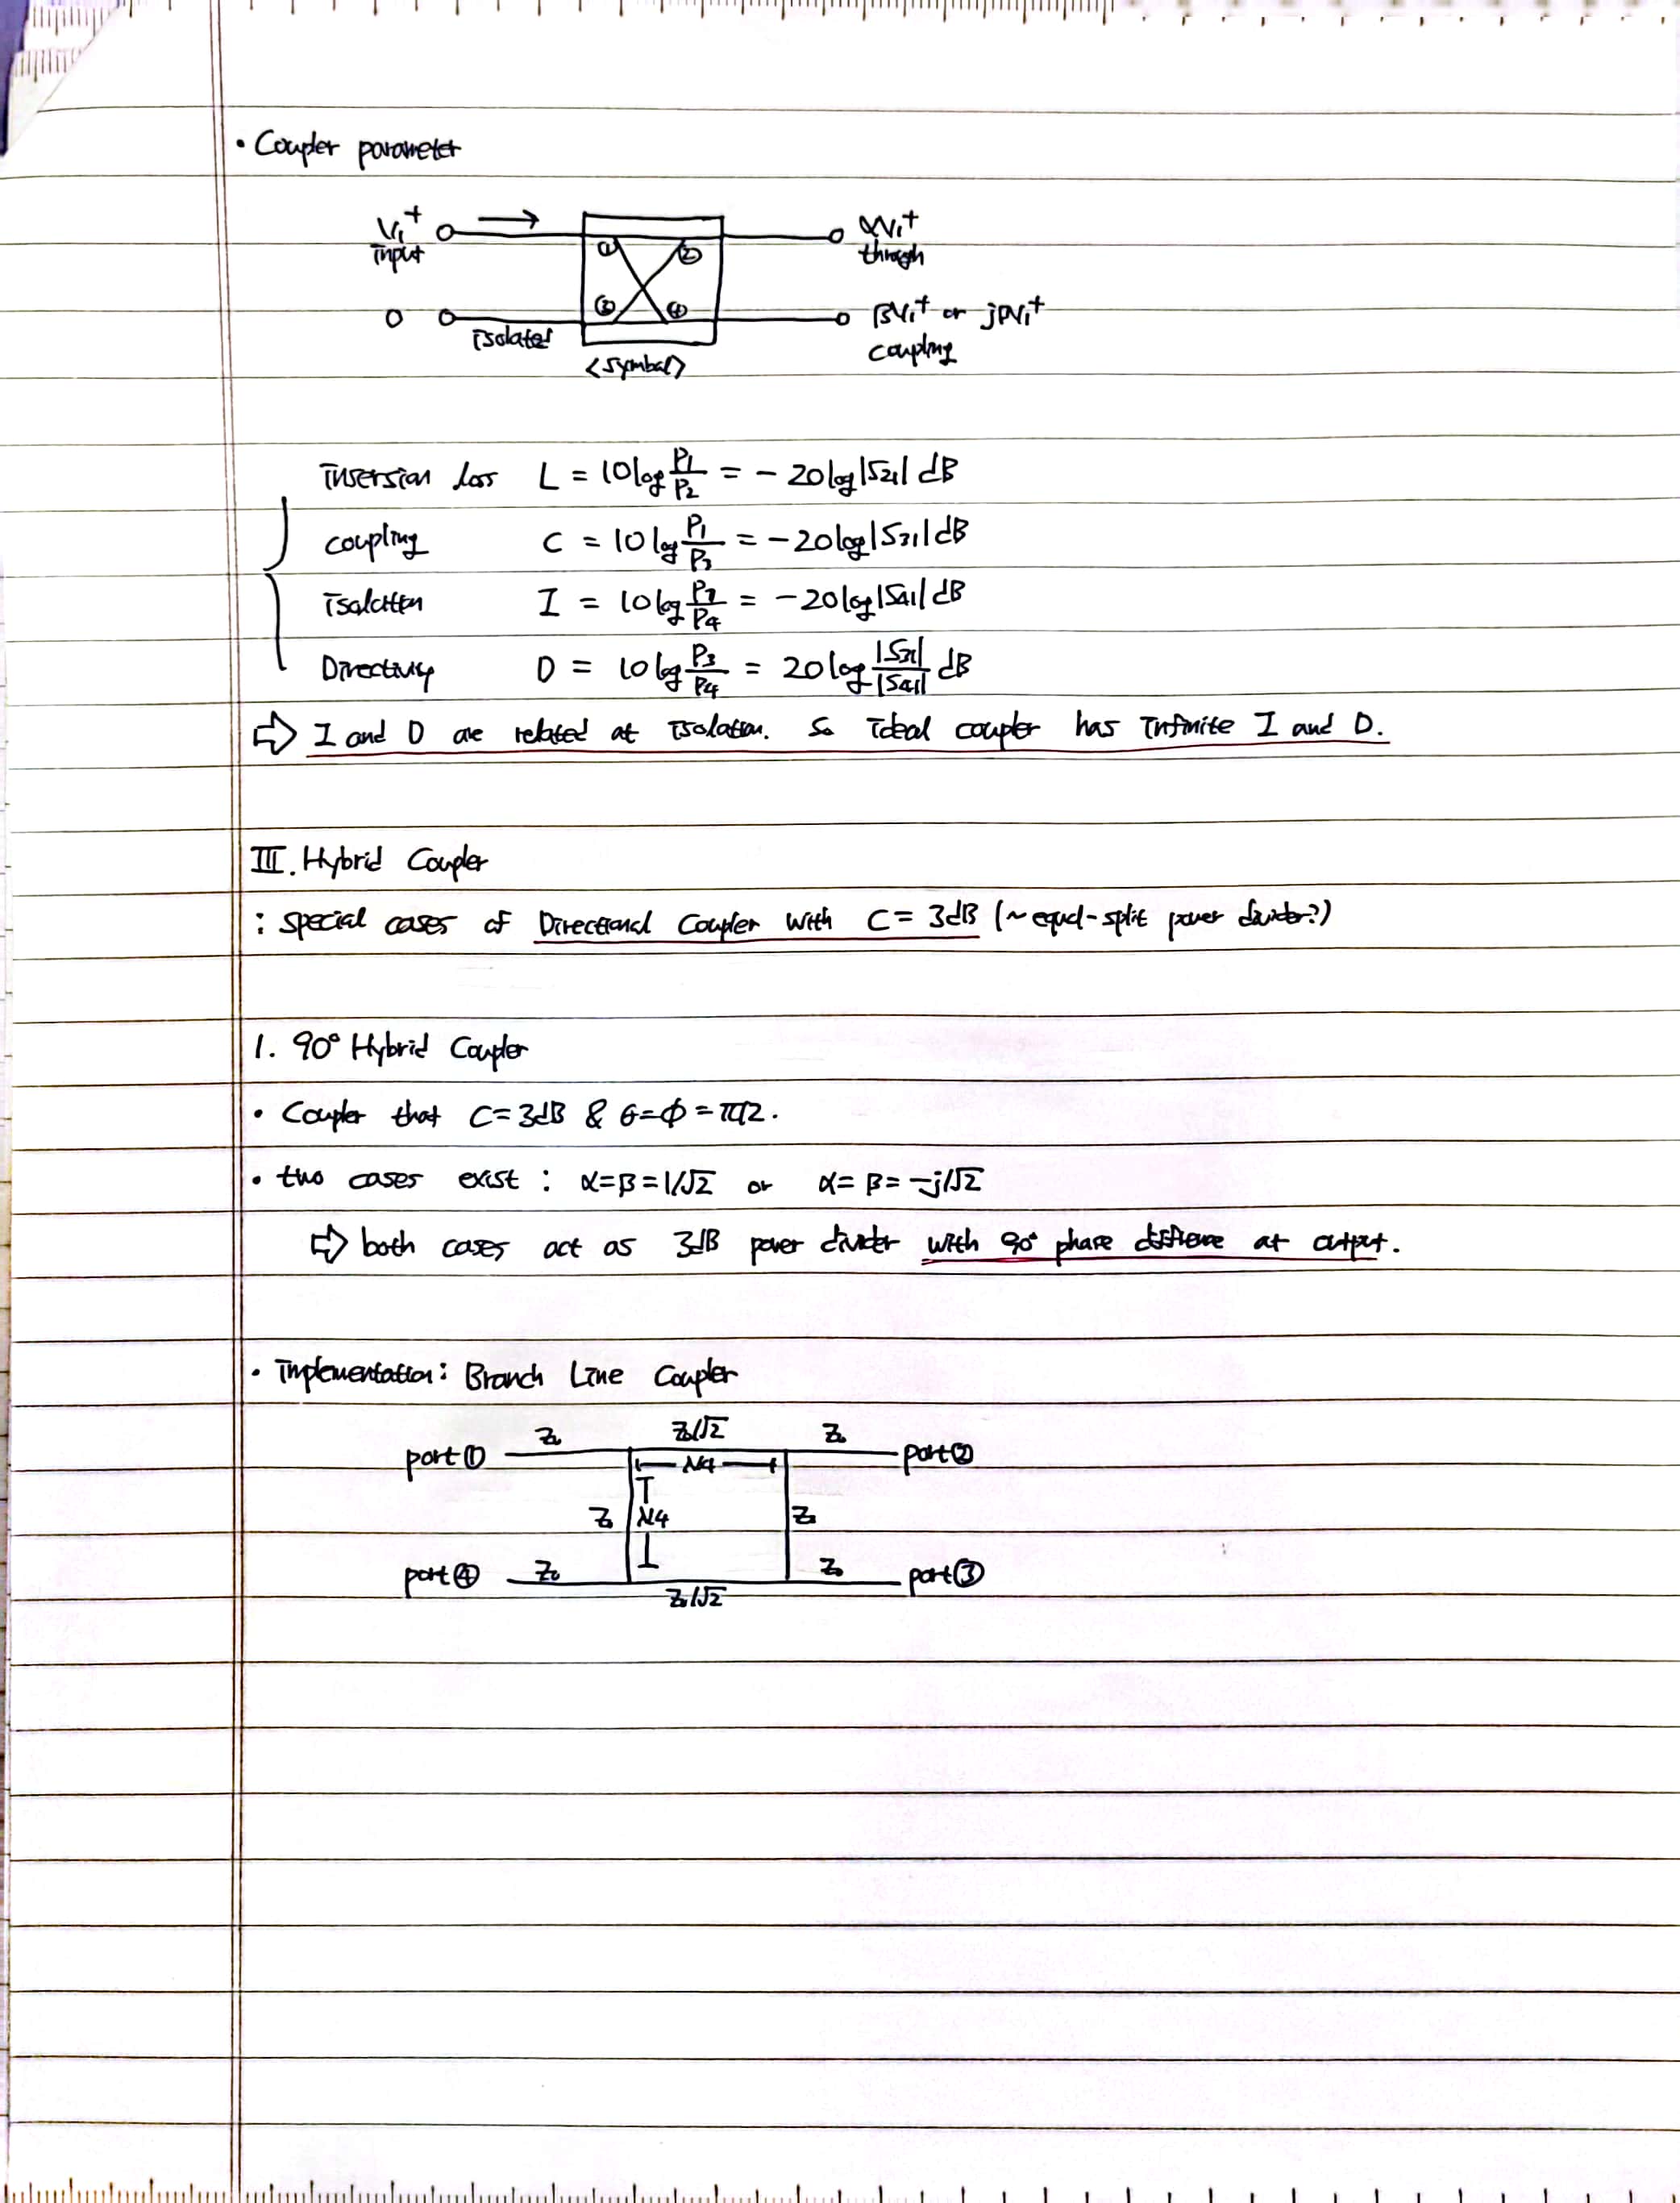 • Coupler parameter
V₁⁺ αV₁⁺
input through
① ②
③ ④
0 βV₁⁺ or jβV₁⁺
isolated coupling
<symbol>
Insersion loss L = 10log P₁/P₂ = -20log|S₂₁| dB
coupling C = 10log P₁/P₃ = -20log|S₃₁| dB
Isolation I = 10log /P₄ = -20log|S₄₁| dB
Directivity D = 10log P₃/P₄ = 20log |S₃₁|/|S₄₁| dB
⇒ I and D are related at isolation. So ideal coupler has infinite I and D.
III. Hybrid Coupler
: special cases of Directional Coupler with C = 3dB (~ equal-split power divider?)
1. 90° Hybrid Coupler
• Coupler that C=3dB & θ=ϕ=π/2.
• two cases exist : α=β=1/√2 or α=β=-j/√2
⇒ both cases act as 3dB power divider with 90° phase difference at output.
• Implementation: Branch Line Coupler
Z₀ Z₀/√2 Z₀
port① port②
λ/4
Z₀ λ/4 Z₀
port④ Z₀ Z₀ port③
Z₀/√2